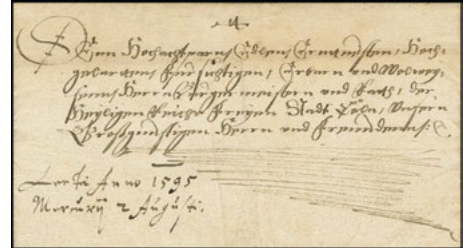 Den Hochachtparn Edlen Ernuesten, Hoch-
gelarten, Fürsichtigen, Erbarn und Wolwey-
sen Herrn Burgermeistern und Rath, der
Heyligen Reichs Freyen Stadt Cöln, Unsern
Großgünstigen Herrn und Freunden
Anno 1595
Mercurij 2 Augusti.